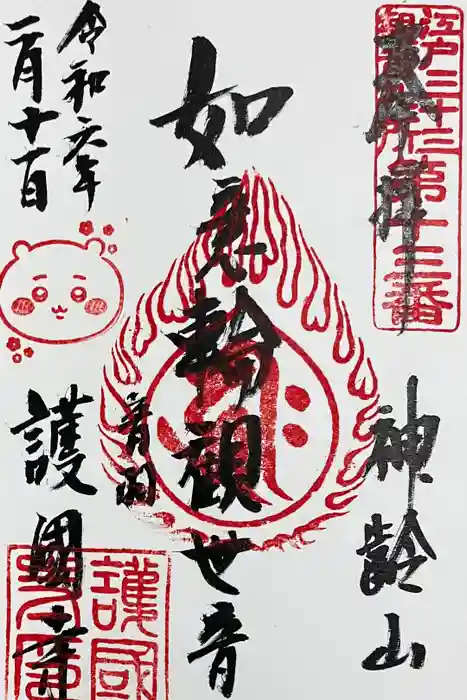 奉拝
江戸三十三
観音札所第十三番
神齡山
如意輪觀世音
音羽
護國寺
令和六年
二月十一日
護國